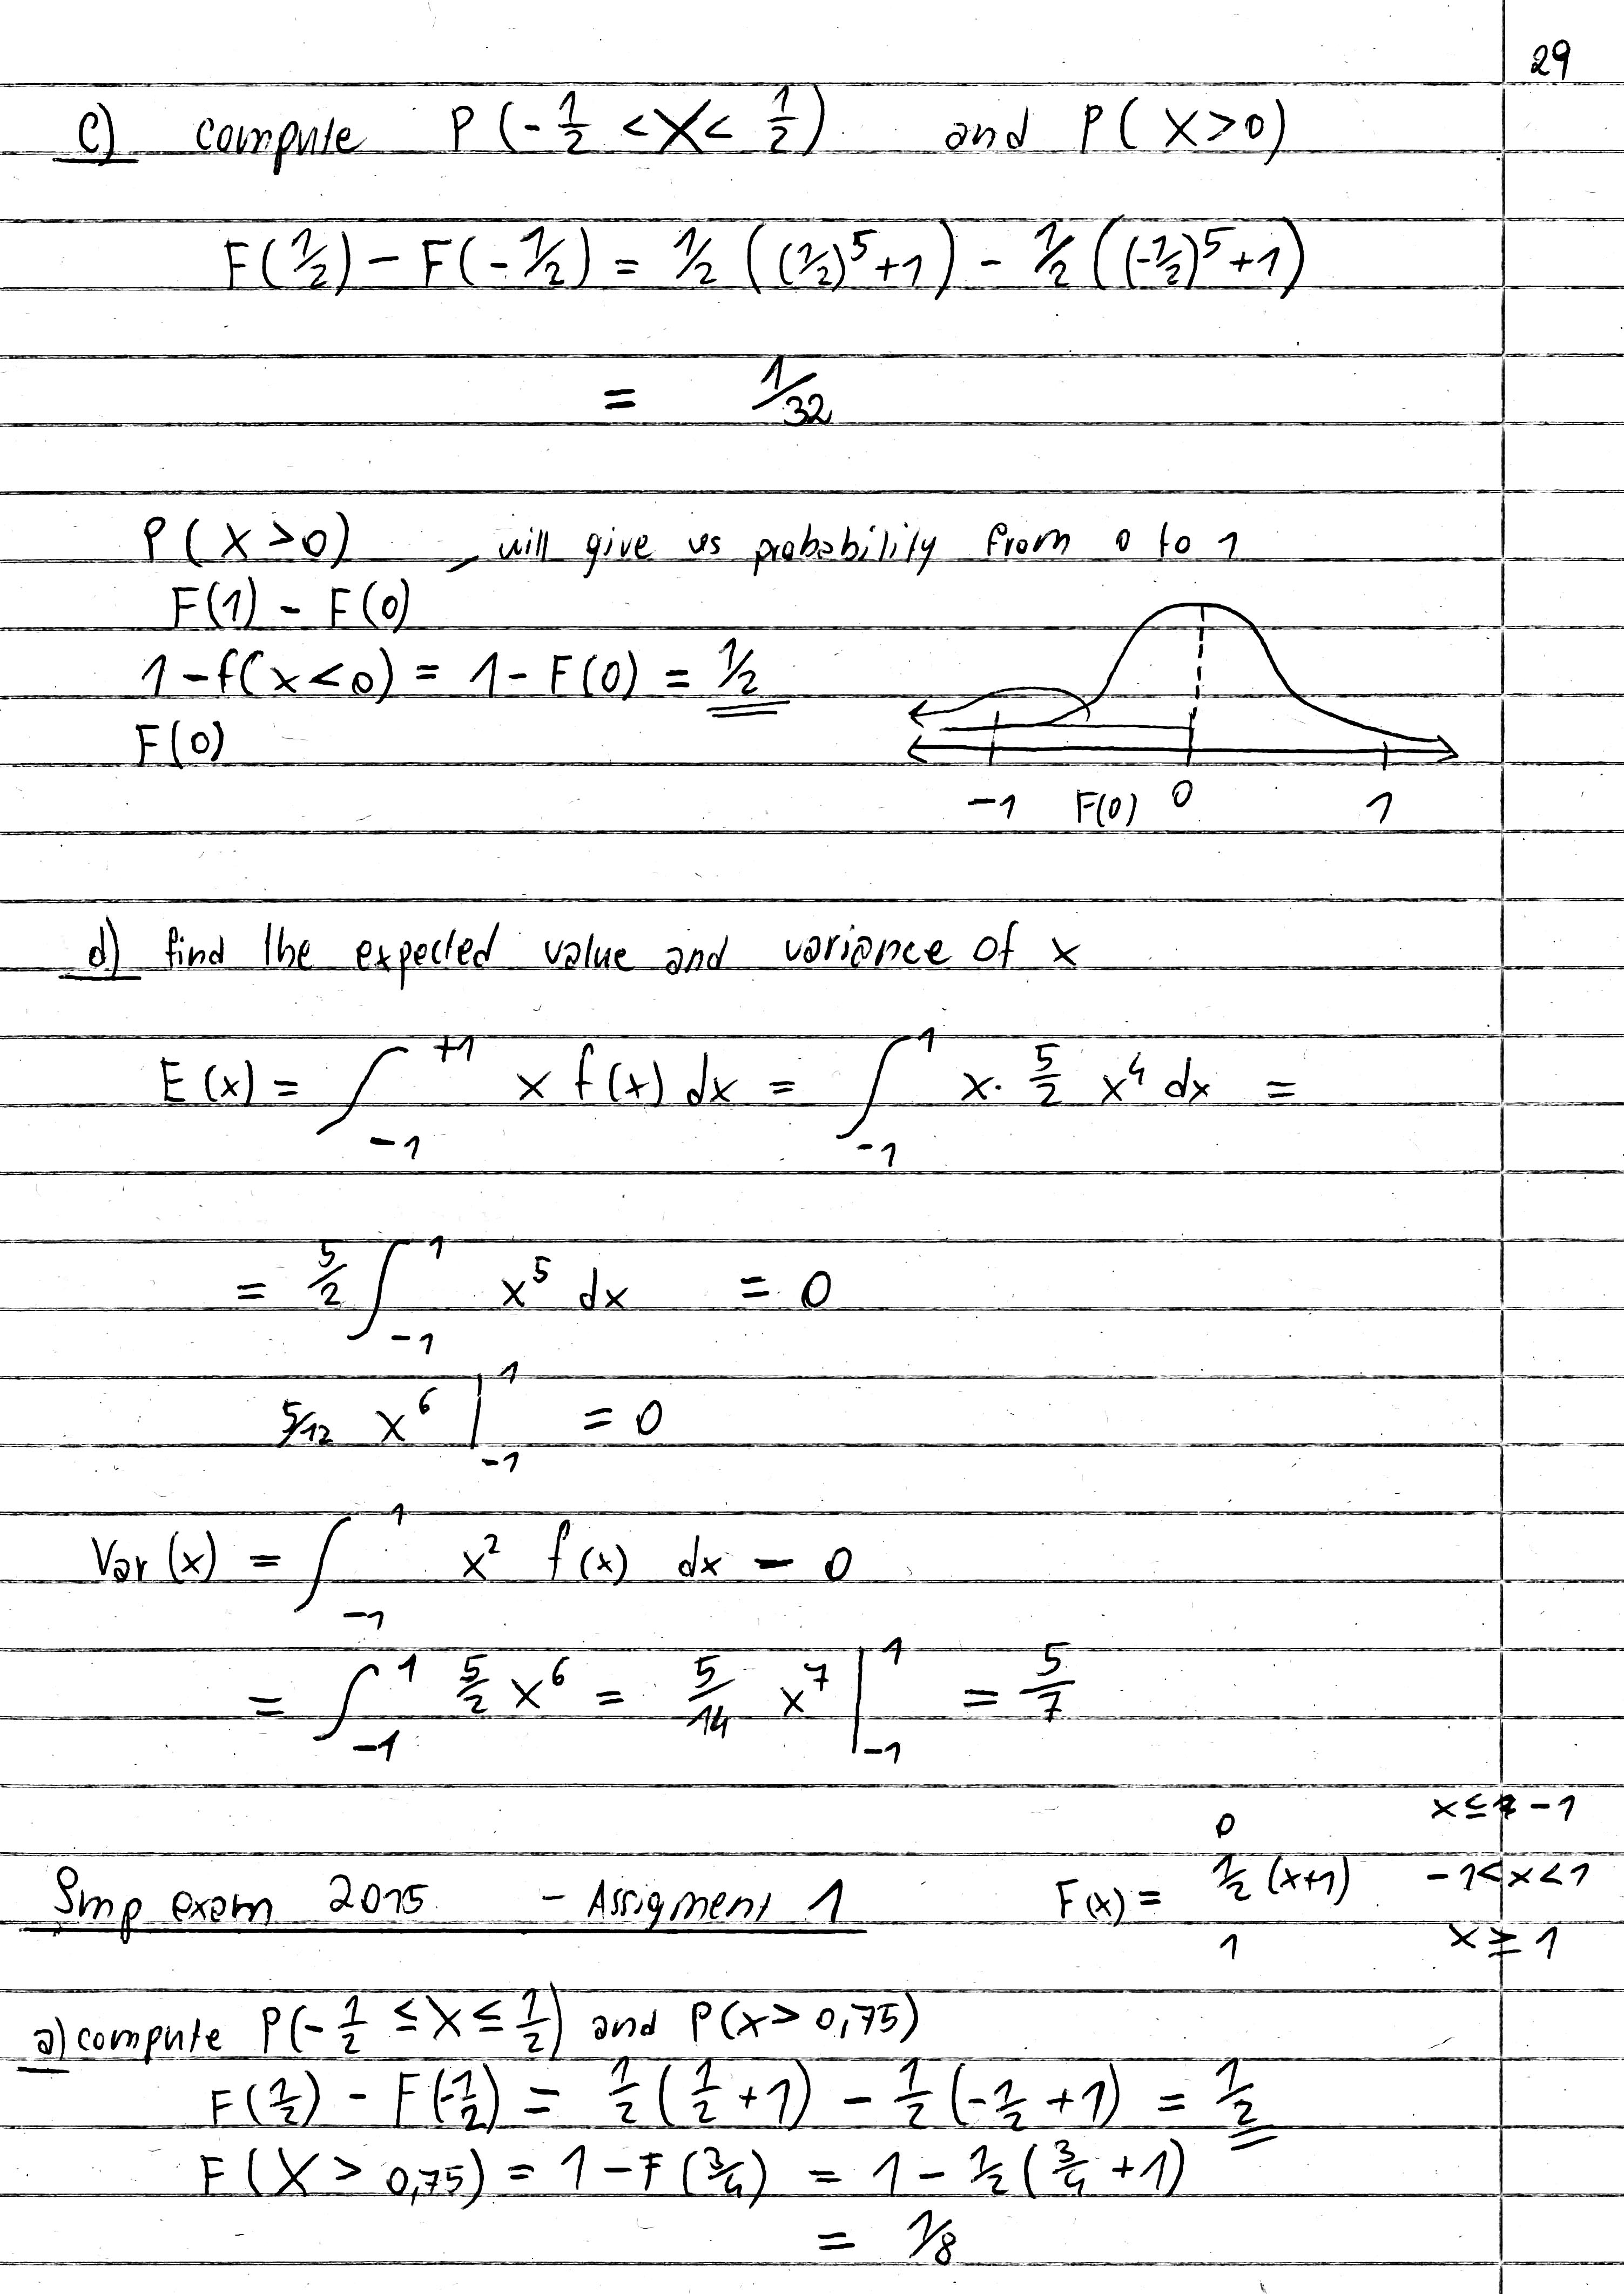 29
c) compute P(-1/2 < X < 1/2) and P(X>0)
F(1/2) - F(-1/2) = 1/2 ((1/2)^5 + 1) - 1/2 ((-1/2)^5 + 1)
= 1/32
P(X>0) , will give us probability from 0 to 1
F(1) - F(0)
1 - f(x<0) = 1 - F(0) = 1/2
F(0)
-1 F(0) 0 1
d) find the expected value and variance of x
E(x) = ∫_{-1}^{+1} x f(x) dx = ∫_{-1}^{1} x · 5/2 x^4 dx =
= 5/2 ∫_{-1}^{1} x^5 dx = 0
5/12 x^6 |_{-1}^{1} = 0
Var(x) = ∫_{-1}^{1} x^2 f(x) dx - 0
= ∫_{-1}^{1} 5/2 x^6 = 5/14 x^7 |_{-1}^{1} = 5/7
0 x ≤ -1
Smp exam 2015 - Assigment 1 F(x) = 1/2 (x+1) -1<x<1
1 x ≥ 1
a) compute P(-1/2 ≤ X ≤ 1/2) and P(x > 0,75)
F(1/2) - F(-1/2) = 1/2 (1/2 + 1) - 1/2 (-1/2 + 1) = 1/2
F(X > 0,75) = 1 - F(3/4) = 1 - 1/2 (3/4 + 1)
= 1/8